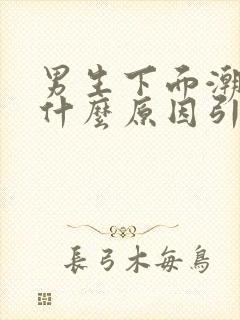 男生下而潮
什麼原因引
長弓木每鳥